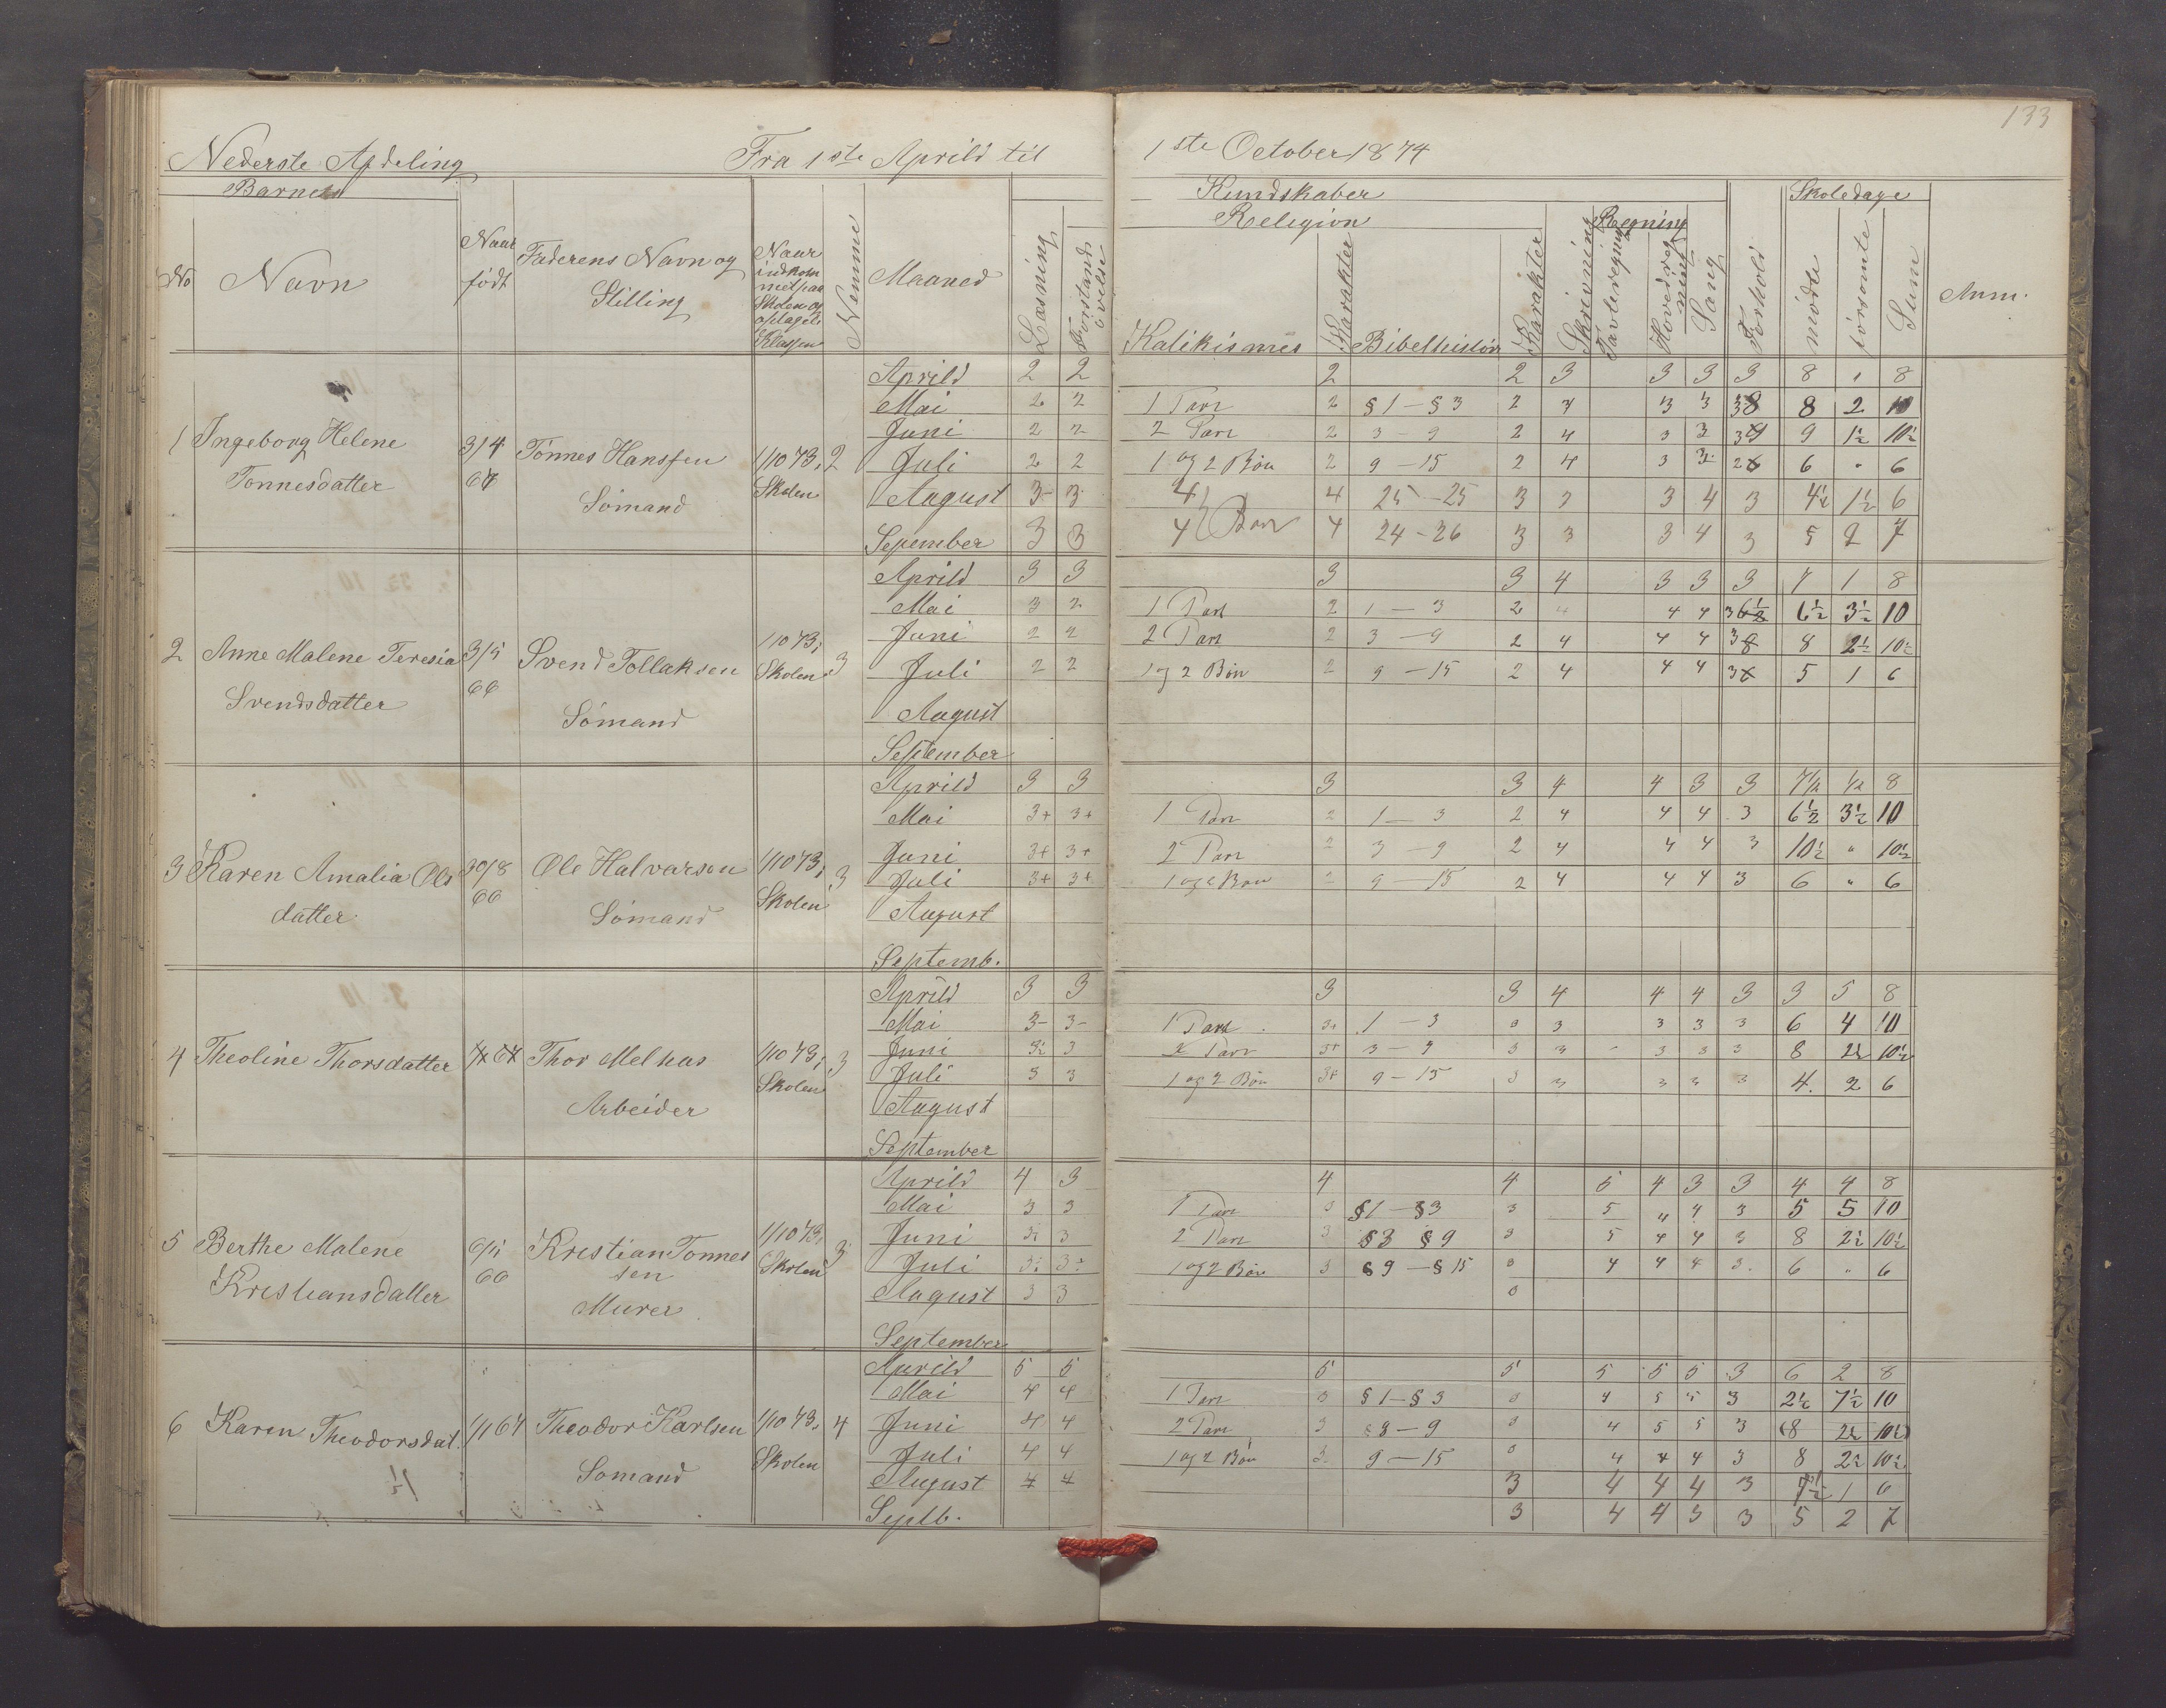 133
Nederste Afdeling Fra 1ste Aprild til 1ste October 1874
Barnets Kundskaber Skoledage
Religion Regning
No Navn Naar født Faderens Navn og Stilling Naar indkommet paa Skolen og optaget i Klassen Nemme Maaned Læsning Forstands øvelse Katikismes Karakter Bibelhistori Karakter Skrivning Tavleregning Hovedregning Sang Forhold mødte forsømte Sum Anm.
Aprild 2 2 2 2 3 3 3 3 8 " 8
Mai 2 2 1 Part 2 § 1 — § 3 2 3 3 8 2 10
Juni 2 2 2 Part 2 3 — 9 2 4 3 3 9 1½ 10½
1 Ingeborg Helene 3/4 Tønnes Hanssen 1/10 73, 2 Juli 2 2 1 og 2 Bøn 2 9 — 15 2 4 3 3 6 " 6
Tønnesdatter 67 Sømand Skolen August 3- 3- 4 4 25 - 25 3 3 3 4 3 4½ 1½ 6
September 3 3 4 Bøn 4 24 - 26 3 3 3 4 3 5 2 7
Aprild 3 3 3 3 4 3 3 3 7 1 8
Mai 3 2 1 Part 2 1 — 3 2 4 4 4 3 6½ 3½ 10
Juni 2 2 2 Part 2 3 — 9 2 4 4 4 3 8 2½ 10½
2 Anne Malene Teresia 3/5 Svend Tollaksen 1/10 73, 3 Juli 2 2 1 og 2 Bøn 2 9 — 15 2 4 4 4 3 5 1 6
Svendsdatter 66 Sømand Skolen August
September
Aprild 3 3 3 3 4 4 3 3 7½ ½ 8
Mai 3+ 3+ 1 Part 2 1 — 3 2 4 4 4 3 6½ 3½ 10
Juni 3+ 3+ 2 Part 2 3 — 9 2 4 4 4 3 10½ " 10½
3 Karen Amalia Ols 30/8 Ole Halvarsen 1/10 73, 3 Juli 3+ 3+ 1 og 2 Bøn 2 9 — 15 2 4 4 4 3 6 " 6
datter 66 Sømand Skolen August
Septemb.
Aprild 3 3 3 3 4 4 4 3 3 5 8
Mai 3- 3- 1 Part 3+ 1 — 3 3 3 3 3 3 6 4 10
4 Theoline Thorsdatter Thor Melhus 1/10 73, 3 Juni 3½ 3 2 Part 3+ 3 — 9 3 3 3 3 3 8 2½ 10½
Skolen Juli 3 3 1 og 2 Bøn 3+ 9 — 15 3 3 3 3 3 4 2 6
Arbeider August
September
Aprild 4 3 4 4 5 4 3 3 4 4 8
Mai 3 3 1 Part 3 § 1 — § 3 3 5 4 4 3 5 5 10
5 Berthe Malene 6/11 Kristian Tønnes 1/10 73, 3 Juni 3 2 Part 3 § 3 § 9 3 5 4 4 3 8 2½ 10½
Kristiansdatter 66 sen Skolen Juli 1 og 2 Bøn 3 § 9 — § 15 3 4 4 4 3 6 " 6
Murer August 3 3 3
September
Aprild 5 5 5 5 5 5 5 3 6 2 8
Mai 4 4 1 Part 3 § 1 — § 3 3 4 5 5 3 2½ 7½ 10
6 Karen Theodorsdat. 1/1 67 Theodor Karlsen 1/10 73, 4 Juni 4 4 2 Part 3 § 3 — 9 3 4 5 5 3 (8 2½ 10½)
Sømand Skolen Juli 4 4 1 og 2 Bøn 3 9 — 15 3 4 4 4 3 8 2½ 10½
August 4 4 3 4 4 4 3 1 6
Septb. 3 4 4 3 3 5 2 7